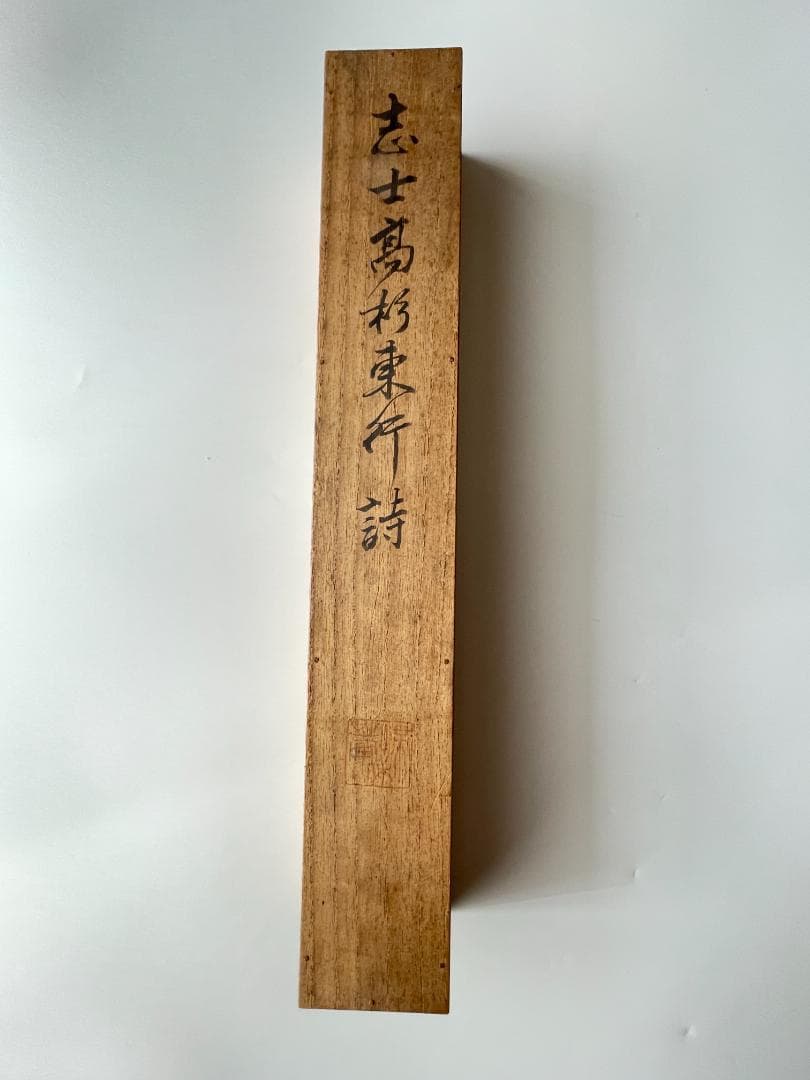 志士髙杉東行詩